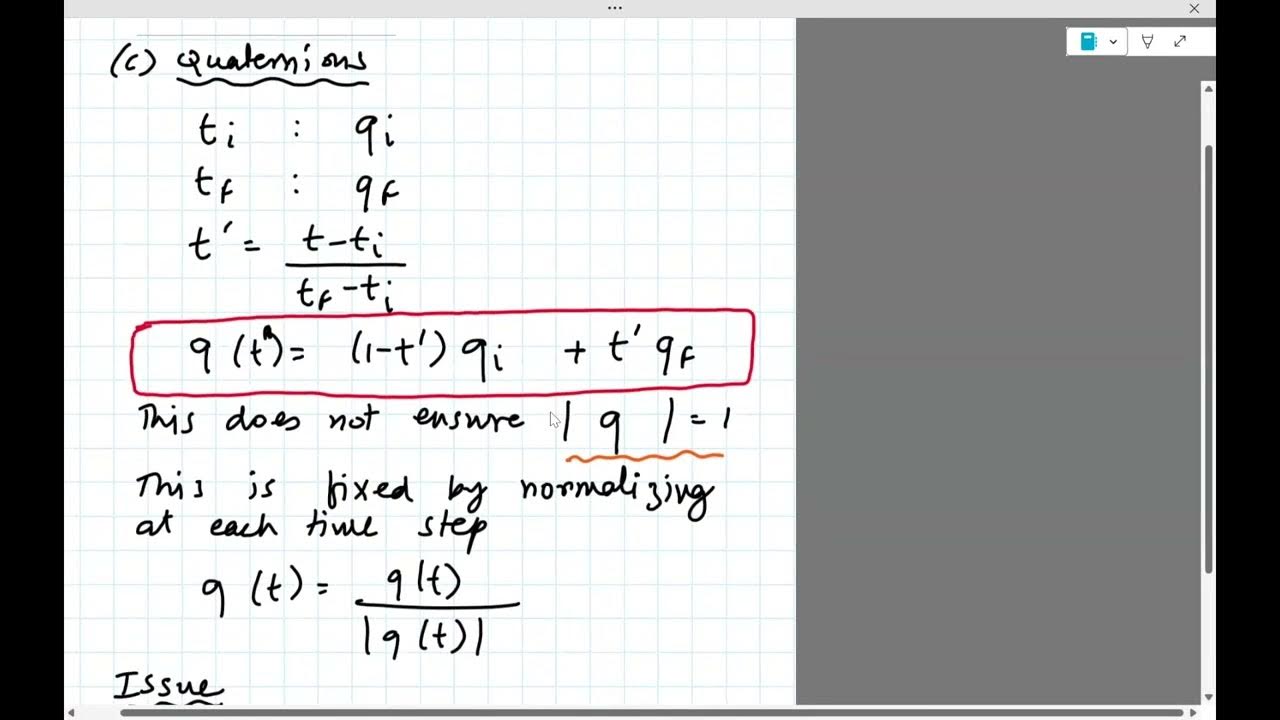 (c) Quaternions
ti : qi
tf : qf
t' = t-ti / tf-ti
q (t') = (1-t') qi + t' qf
This does not ensure | q | = 1
This is fixed by normalizing
at each time step
q (t) = q(t) / |q(t)|
Issue